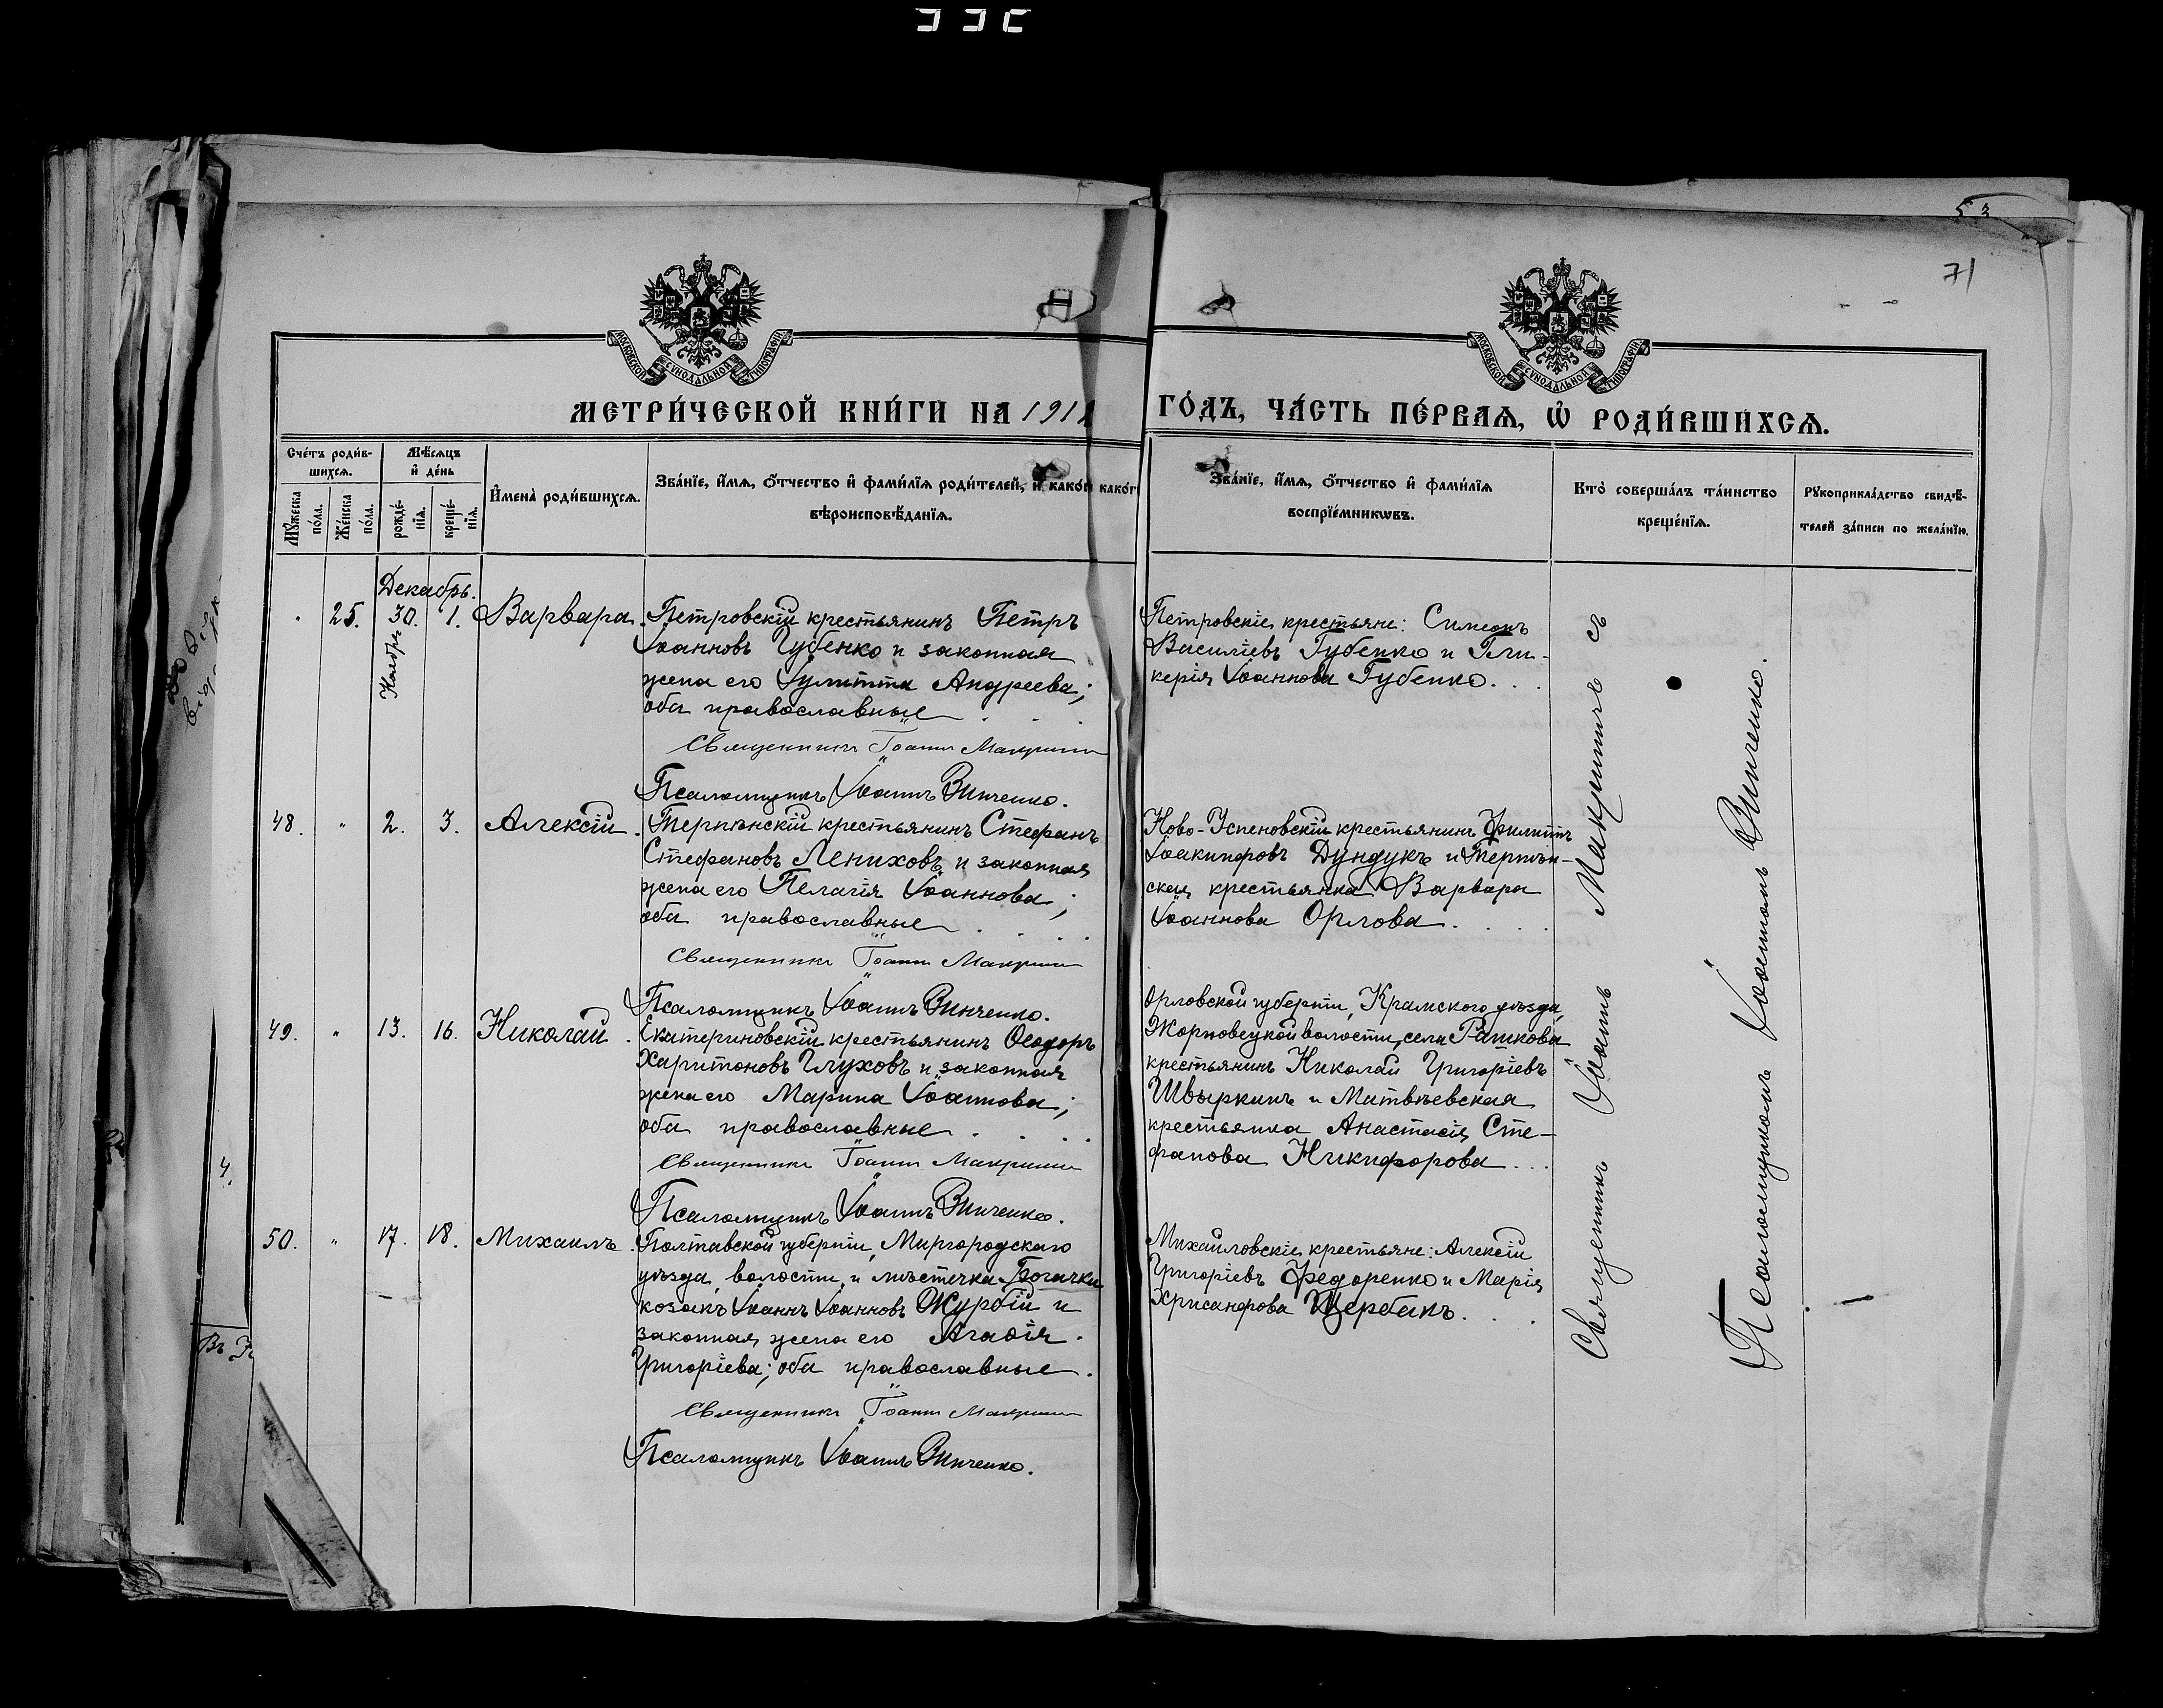 53
71
МОСКОВСКОЙ СѴНОДАЛЬНОЙ ТИПОГРАФІИ
МОСКОВСКОЙ СѴНОДАЛЬНОЙ ТИПОГРАФІИ
МЕТРИ́ЧЕСКОЙ КНИ́ГИ НА 191
ГО́ДЪ, ЧА́СТЬ ПЕ́РВАѦ, Ѡ҆ РОДИ́ВШИХСѦ.
Сче́тъ роди́в-
шихсѧ.
Мѣ́сѧцъ
и҆ де́нь
Мꙋ́жеска
по́ла.
Же́нска
по́ла.
рожде́-
нїѧ.
креще́-
нїѧ.
И҆мена̀ роди́вшихсѧ.
Зва́нїе, и҆́мѧ, ѻ҆́тчество и҆ фами́лїѧ роди́телей, и҆ како́гѡ
вѣроисповѣ́данїѧ.
Зва́нїе, и҆́мѧ, ѻ҆́тчество и҆ фами́лїѧ
воспрїе́мникѡвъ.
Кто̀ соверша́лъ та́инство
креще́нїѧ.
Рꙋкоприкла́дство свидѣ́-
телей за́писи по жела́нїю.
Декабрь.
" 25. 30. 1. Варвара. Петровскій крестьянинъ Петръ
Ноября
Іоанновъ Губенко и законная
жена его Іулитта Андреева;
оба православные
Священникъ Іоаннъ Макринъ
Псаломщикъ Іоаннъ Зинченко.
Петровскіе крестьяне: Симеонъ
Василіевъ Губенко и Гли-
керія Іоаннова Губенко.
48. " 2. 3. Алексій. Терпѣнскій крестьянинъ Стефанъ
Стефановъ Лениховъ и законная
жена его Пелагія Іоаннова;
оба православные
Священникъ Іоаннъ Макринъ
Псаломщикъ Іоаннъ Зинченко.
Ново-Успеновскій крестьянинъ Филиппъ
Іоакинфовъ Дундукъ и Терпѣн-
ская крестьянка Варвара
Іоаннова Орлова.
49. " 13. 16. Николай. Екатериновскій крестьянинъ Ѳеодоръ
Харитоновъ Глуховъ и законная
жена его Марина Іоаннова;
оба православные
Священникъ Іоаннъ Макринъ
Псаломщикъ Іоаннъ Зинченко.
Орловской губерніи, Крамского уѣзда,
волости, села Рашкова
крестьянинъ Николай Григоріевъ
Швыркинъ и Матвѣевская
крестьянка Анастасія Сте-
фанова Никифорова
50. " 17. 18. Михаилъ. Полтавской губерніи, Миргородскаго
уѣзда, волости и мѣстечка Богачки
козакъ Іоаннъ Іоанновъ Журбій и
законная жена его Агаѳія
Григоріева; оба православные.
Священникъ Іоаннъ Макринъ
Псаломщикъ Іоаннъ Зинченко.
Михайловскіе крестьяне: Алексій
Григоріевъ Федоренко и Марія
Хрисанфова Щербакъ.
Священникъ Іоаннъ Макринъ съ
Псаломщикомъ Іоанномъ Зинченко.